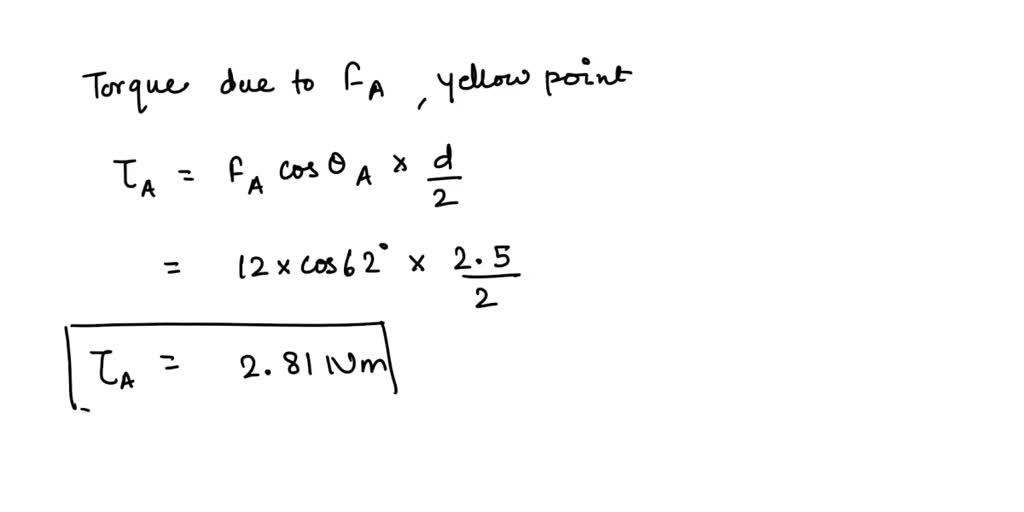 Torque due to FA, yellow point
τA = FA cosθA × d/2
= 12 × cos62° × 2.5/2
τA = 2.81 Nm